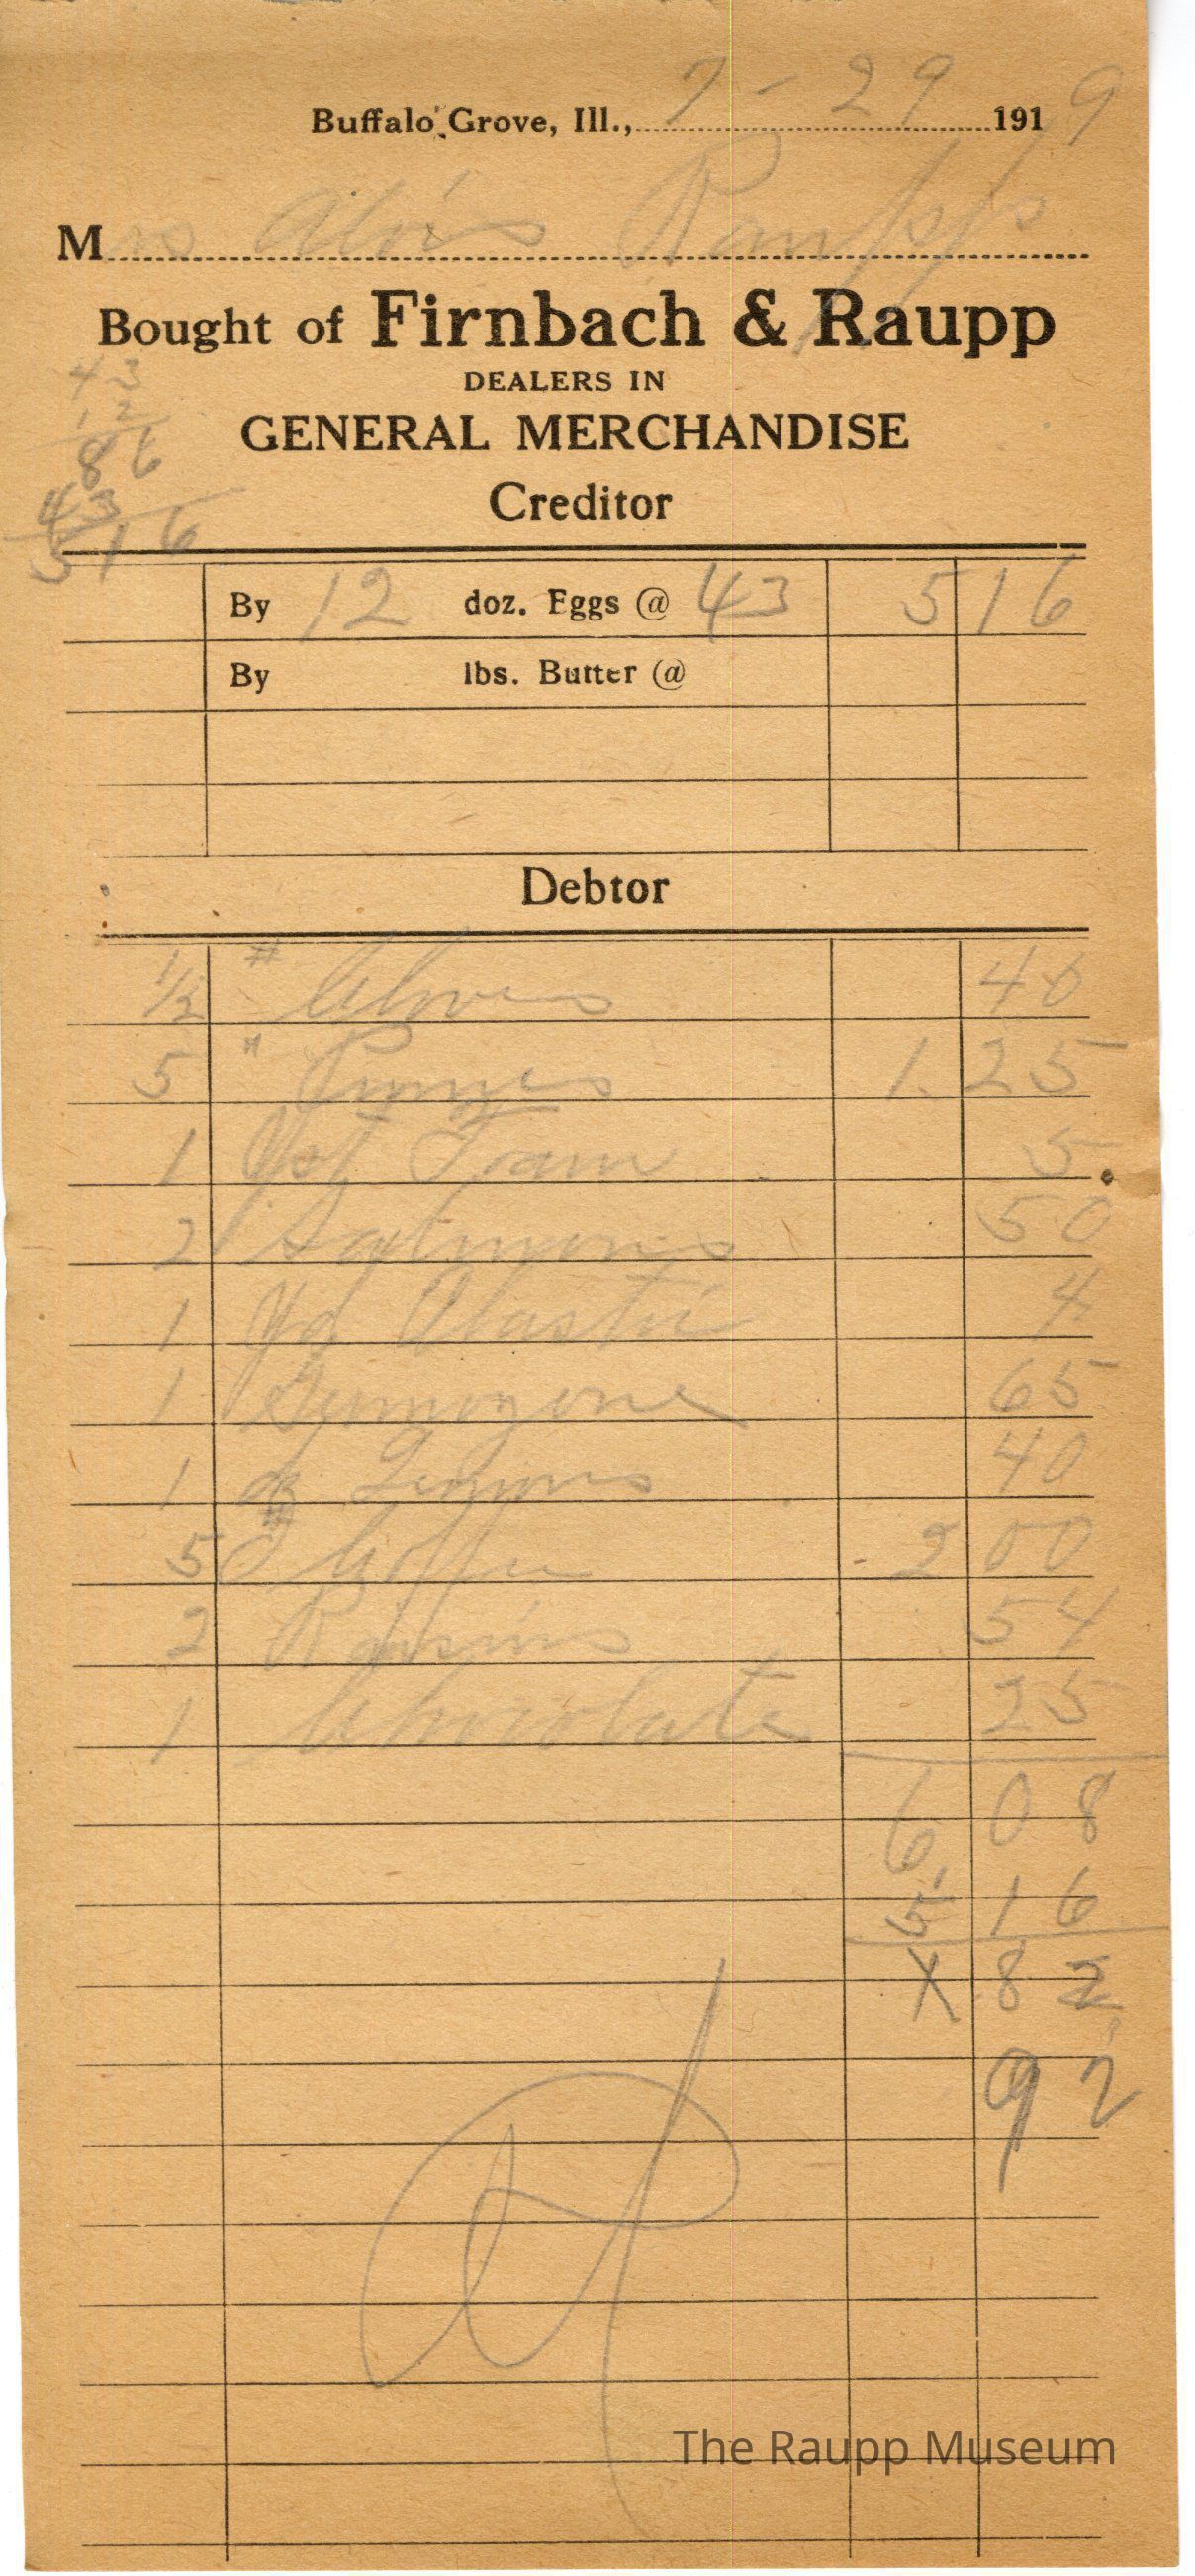 Buffalo Grove, Ill., 7 - 29 1919
Mrs Alois Raupp
Bought of Firnbach & Raupp
DEALERS IN
GENERAL MERCHANDISE
Creditor
43
12
86
43
516
By 12 doz. Eggs @ 43 5 16
By lbs. Butter @
Debtor
1/2 # 40
5 # Prunes 1.25
1 5
2 Salmons 50
1 Yd Elastic 4
1 65
1 Lemons 40
5 # Coffee 2 00
2 Raisins 54
1 Chocolate 25
6 08
5 16
X 8 2
92
The Raupp Museum